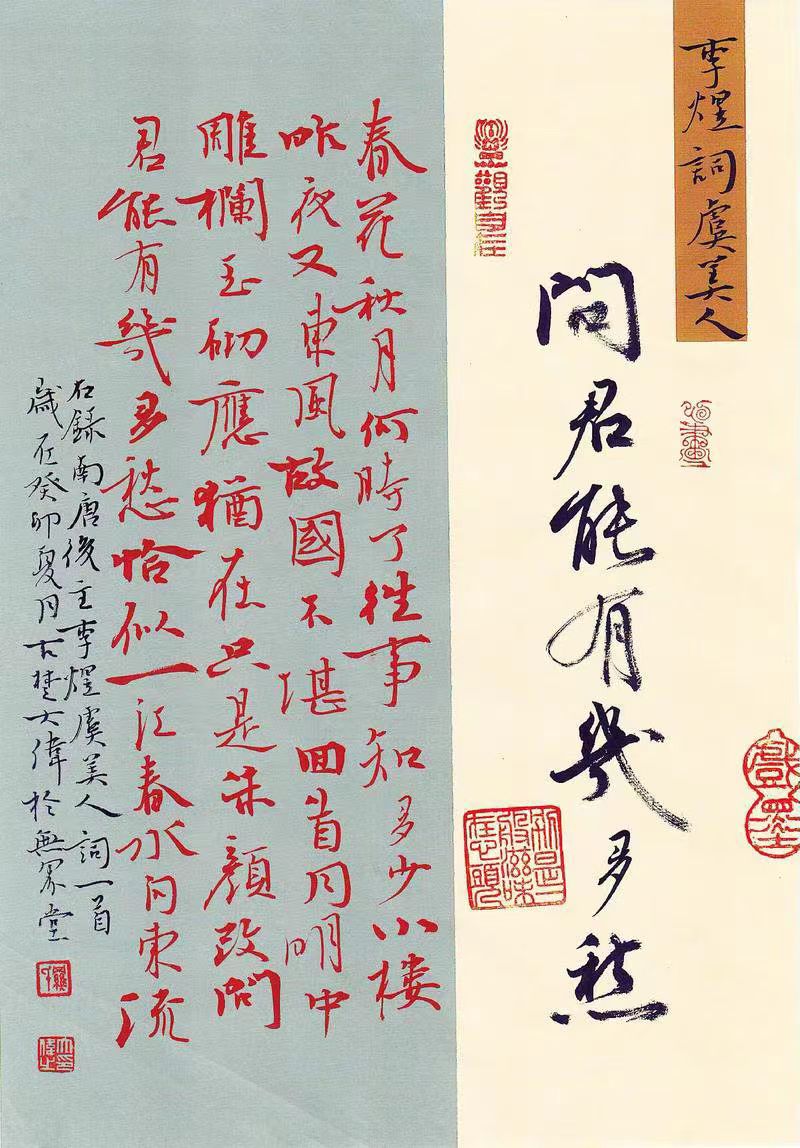 李煜詞虞美人
問君能有幾多愁
觀自在
戲墨
別是一
般滋味
在心頭
春花秋月何時了往事知多少小樓
昨夜又東風故國不堪回首月明中
雕欄玉砌應猶在只是朱顏改問
君能有幾多愁恰似一江春水向東流
右錄南唐後主李煜虞美人詞一首
歲在癸卯夏月古楚大偉於無堂